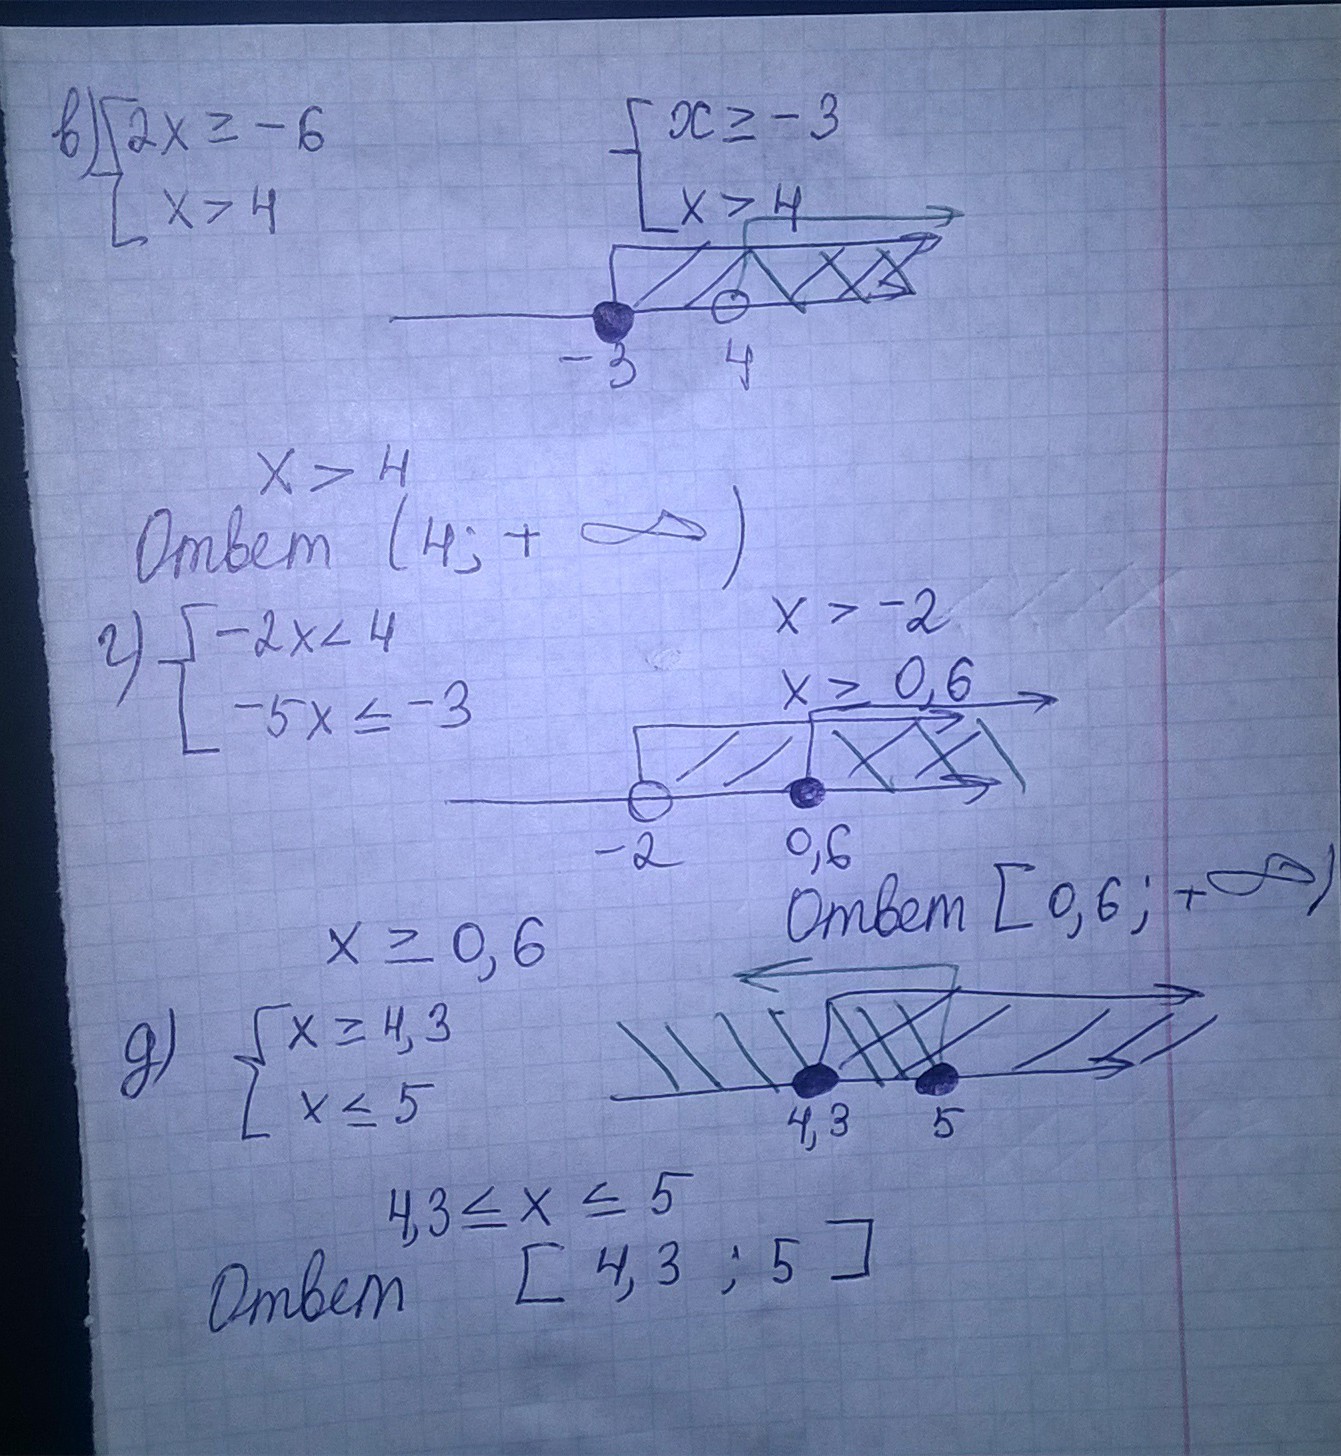 в) 2x ≥ -6
x > 4
x ≥ -3
x > 4
-3 4
x > 4
Ответ (4; + ∞)
г) -2x < 4
-5x ≤ -3
x > -2
x ≥ 0,6
-2 0,6
x ≥ 0,6
Ответ [0,6; +∞)
д) x ≥ 4,3
x ≤ 5
4,3 5
4,3 ≤ x ≤ 5
Ответ [4,3 ; 5]